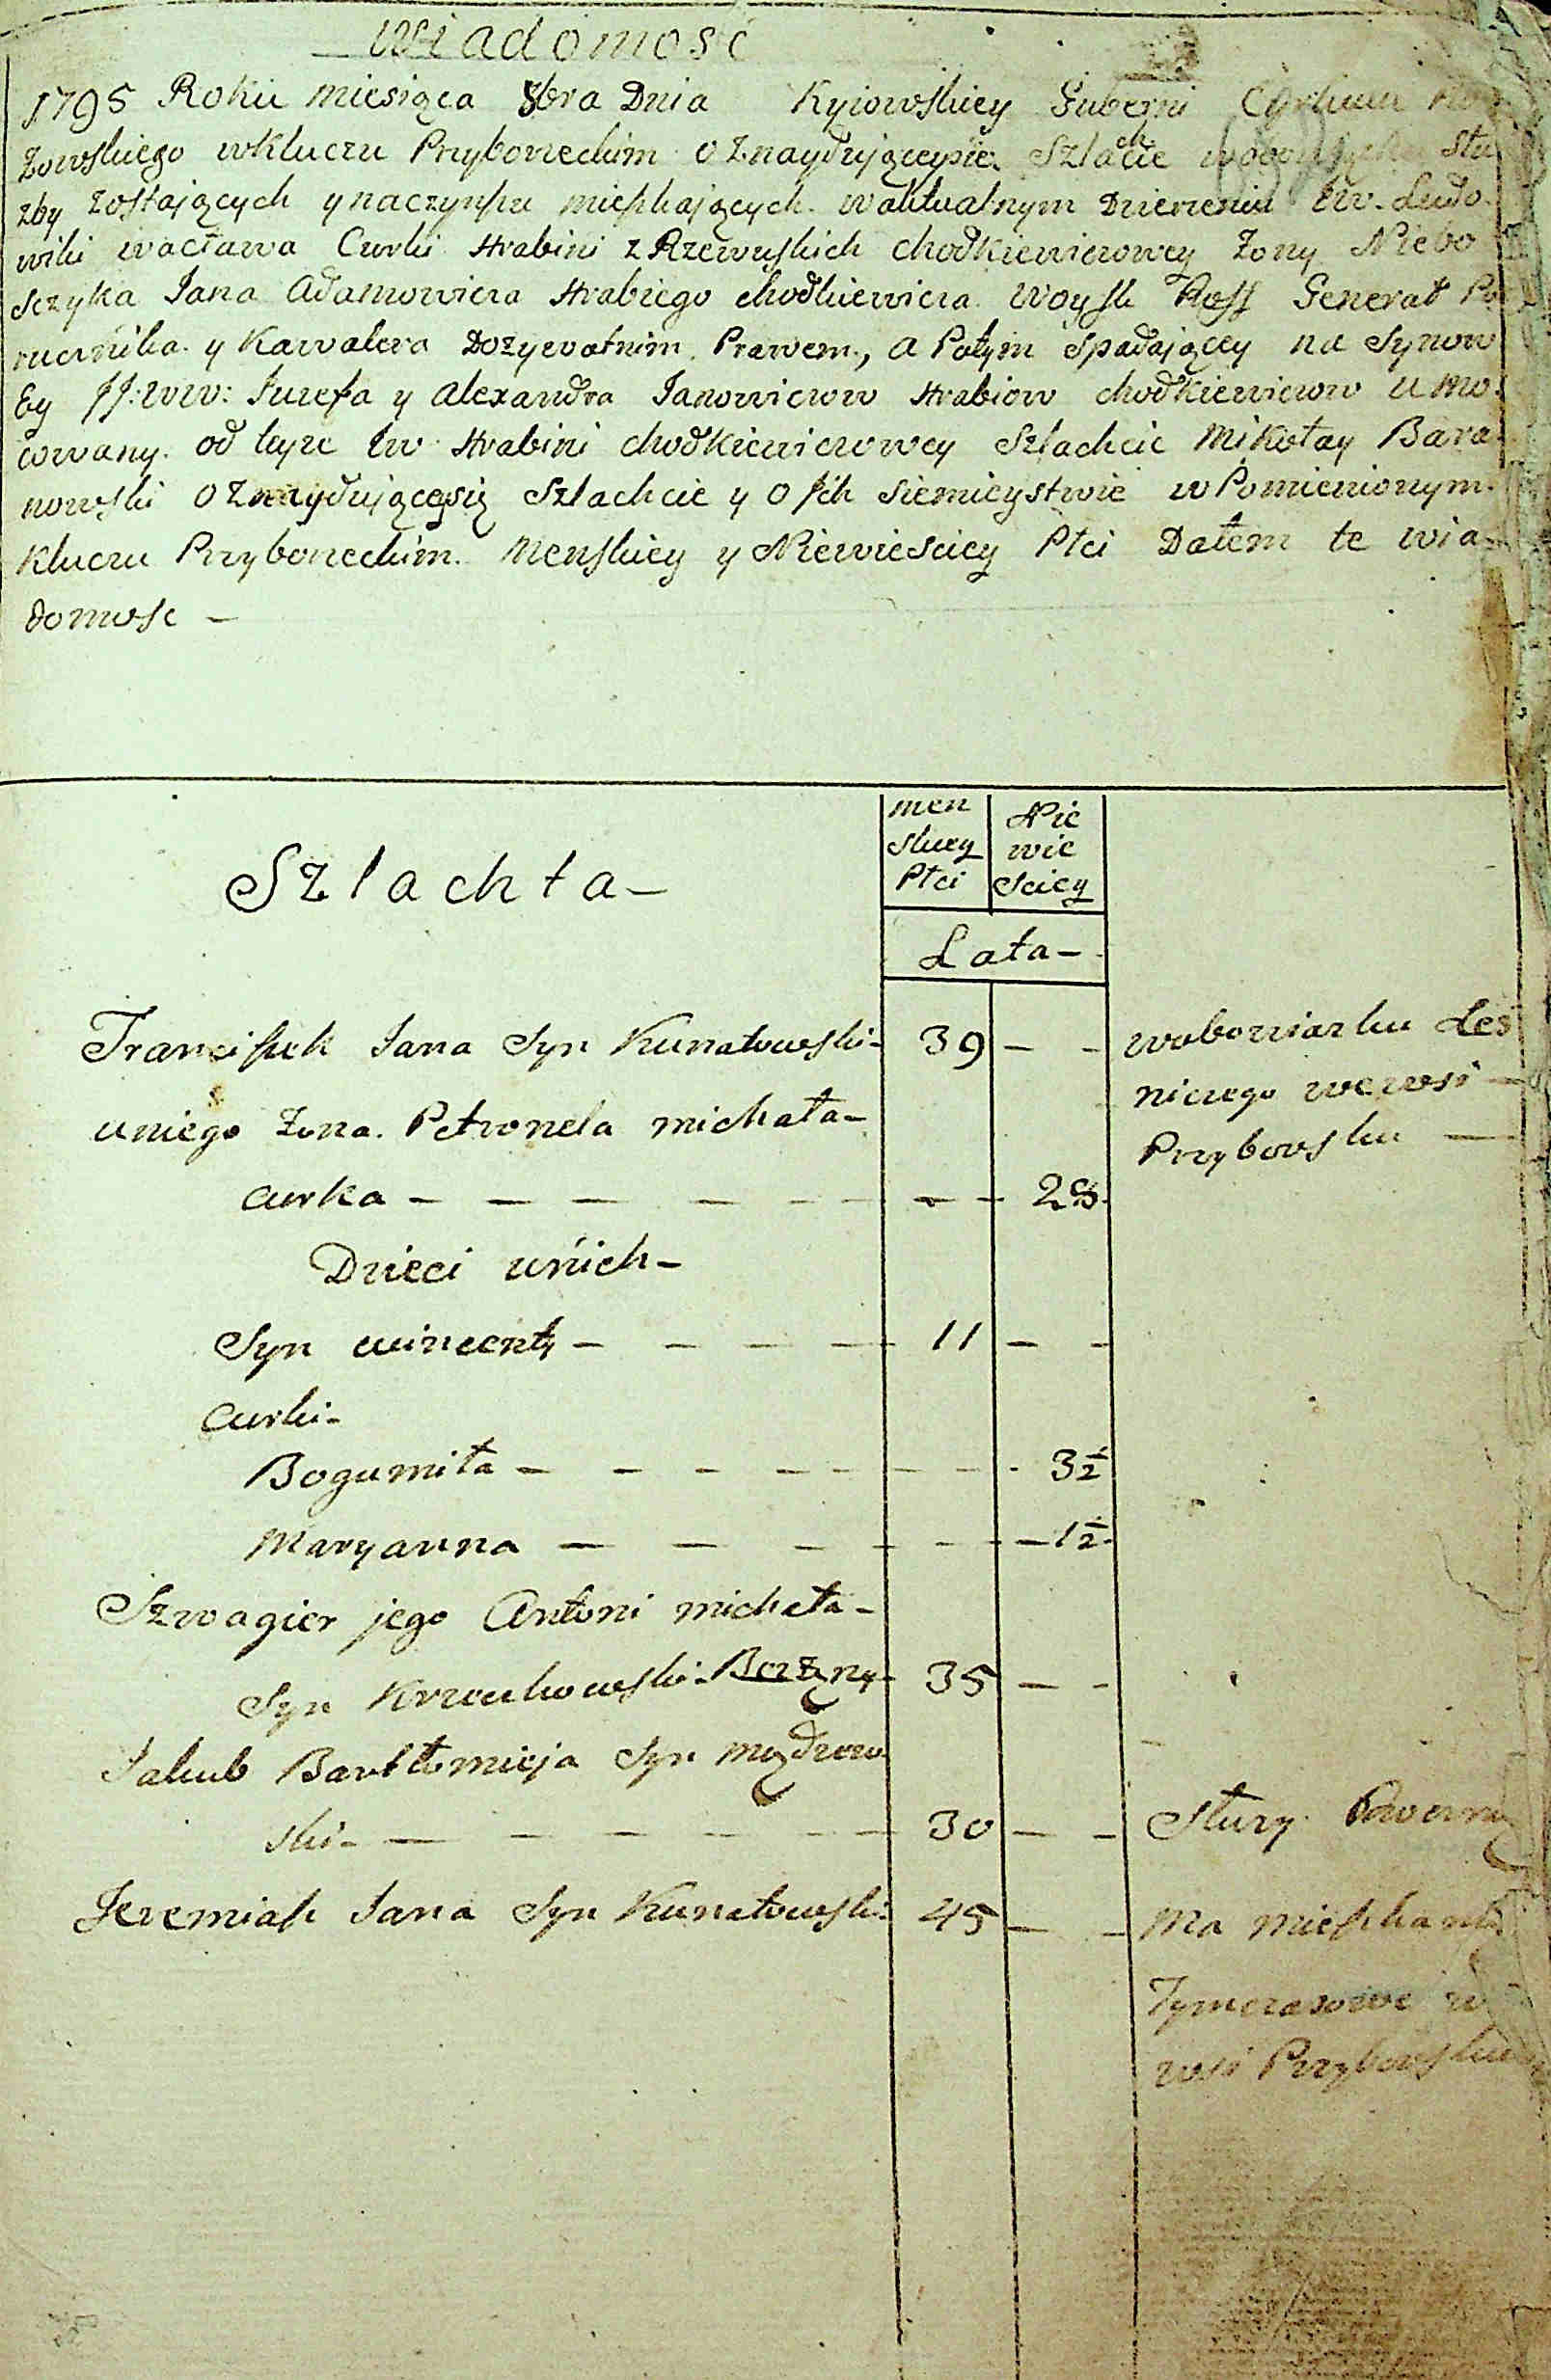 Wiadomosc
1795 Roku miesiąca 8bra Dnia Kyiowskiey Guberni Cyrkułu
zowskiego wkluczu Pryboreckim o Znayduiąceysie Szlachcie Słu
zby zostających y naczynszu mieszkających. w aktualnym Dzierzeniu JW. Ludo
wiki wacława Curki Hrabini z Rzewuskich chodkiewiczowey Zony Niebo
sczyka Jana Adamowicza Hrabiego chodkiewicza Woysk Ross Generał Po
rucznika y Kawalera Dozyewatnim Prawem, a Potym Spadającey na Synow
Ey JJ:WW: Juzefa y Alexandra Janowiczow Hrabiow chodkiewiczow umo
cowany od teyze JW Hrabini chodkiewiczowey Szlachcic Mikołay Bara
nowski o Znaydującesię Szlachcie y o Jch Siemieystwie w Pomienionym
Kluczu Pryboreckim. Menskiey y Niewiesciey Płci Dałem te wia
domosc —
Szlachta —
men Nie
skiey wie
Płci sciey
Lata —
Franciszek Jana Syn Kunatowski 39 — — wobowiazku Les
niczego we wsi —
uniego Zona. Petronela michała —
Przyborsku —
curka — — — — — — — — 28.
Dzieci unich —
Syn wincenty — — — — 11 — —
Curki —
Bogumiła — — — — — — — 3½
Maryanna — — — — — — 1½
Szwagier jego Antoni michała —
Syn Kozuchowski Bezżęny 35 — —
Jakub Bartłomieja Syn mądrzew
ski — — — — — — 30 — — Słuzy
Jeremiasz Jana Syn Kunatowski 45 — — Ma
Tymczasowe w
wsi Przyborsku